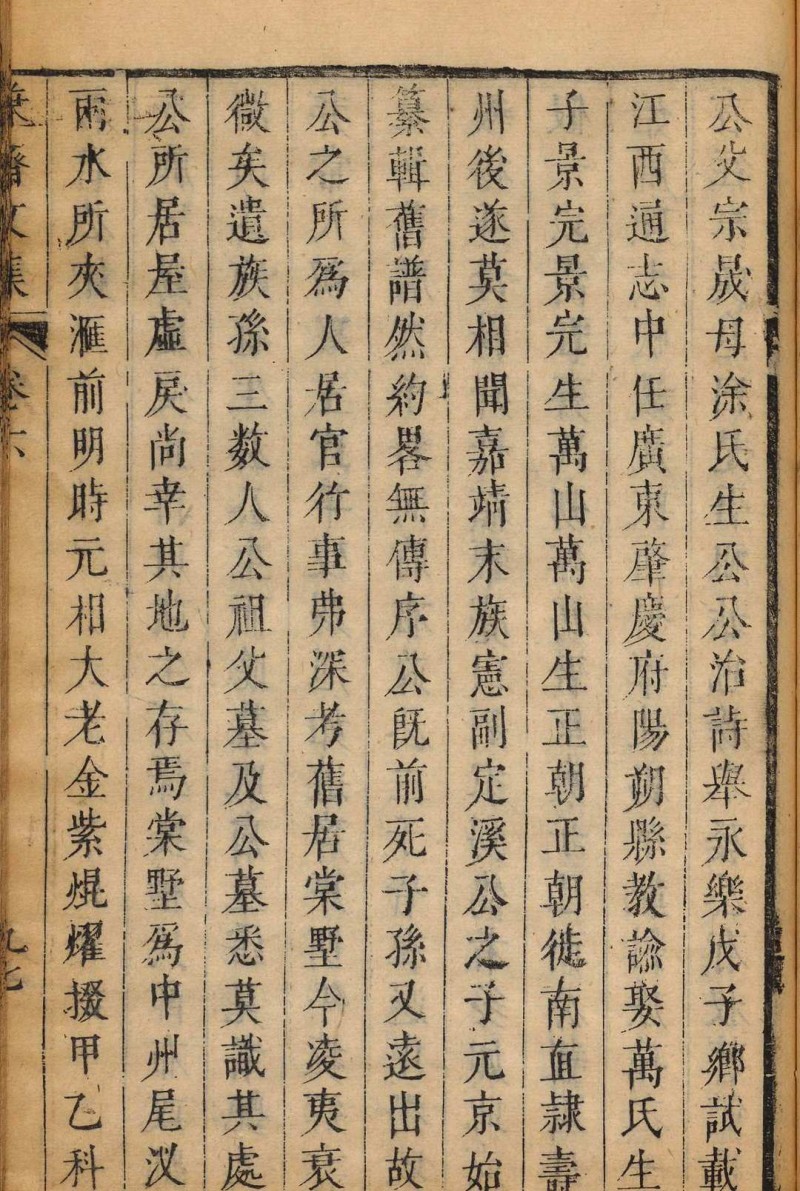 公父宗晟母涂氏生公公治詩舉永樂戊子鄉試載
江西通志中任廣東肇慶府陽朔縣教諭娶萬氏生
子景完景完生萬山萬山生正朝正朝徙南直隸壽
州後遂莫相聞嘉靖末族憲副定溪公之子元京始
纂輯舊譜然約畧無傳序公旣前死子孫又遠出故
公之所爲人居官行事弗深考舊居棠墅今凌夷衰
微矣遺族孫三數人公祖父墓及公墓悉莫識其處
公所居屋虛戾尚幸其地之存焉棠墅爲中州尾汊
兩水所夾滙前明時元相大老金紫焜燿掇甲乙科
文集 卷六 九七